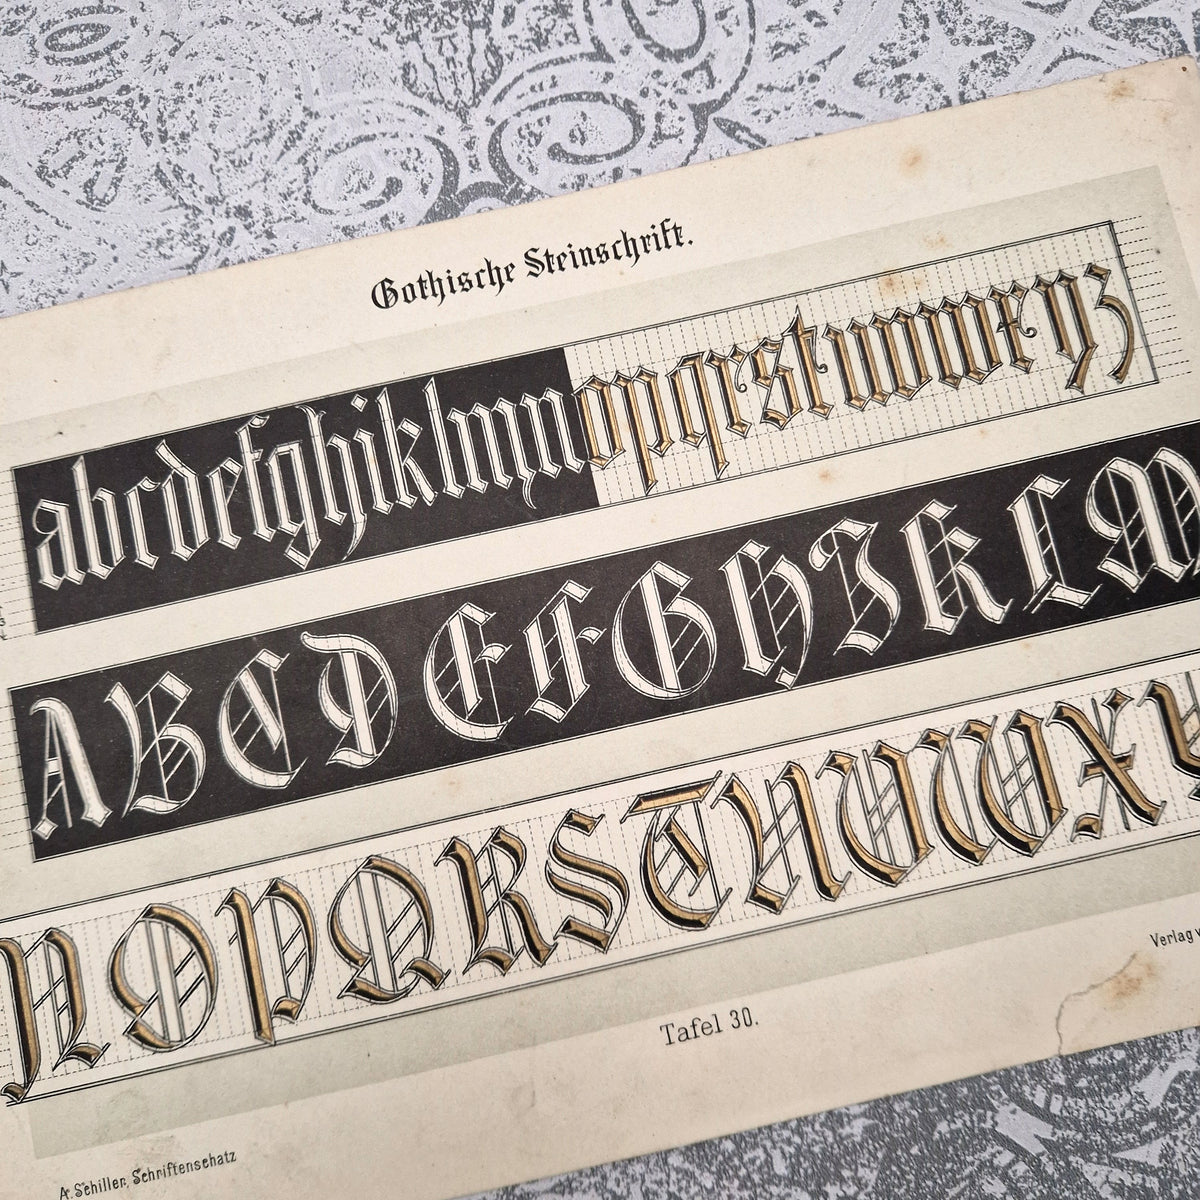 Gothische Steinschrift.
abcdefghiklmnopqrstuvwxyz
ABCDEFGHIKLM
NOPQRSTUVWXY
Tafel 30.
Verlag
A. Schiller, Schriftenschatz